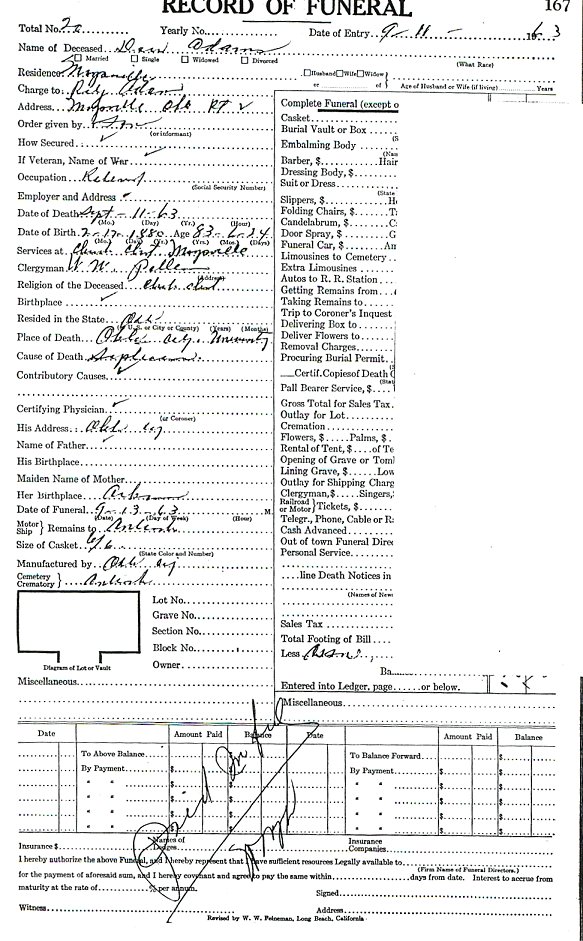 RECORD OF FUNERAL 167
Total No. 72 Yearly No. Date of Entry 9-11- 1963
Name of Deceased Adams
Married Single Widowed Divorced (What Race)
Residence Moyersville Husband Wife Widow
or of Age of Husband or Wife (if living) Years
Charge to
Address Okla Rt 2
Order given by Son
(or informant)
How Secured
If Veteran, Name of War
Occupation Retired
(Social Security Number)
Employer and Address
Date of Death Sept-11-63
(Mo.) (Day) (Yr.) (Hour)
Date of Birth 2-17-1880 Age 83-6-24
(Mo.) (Day) (Yr.) (Yrs.) (Mos.) (Days)
Services at Church Christ
Clergyman W. W.
(Address)
Religion of the Deceased Church Christ
Birthplace
Resided in the State Okla
(or U.S. or City or County) (Years) (Months)
Place of Death Okla City University
Cause of Death
Contributory Causes
Certifying Physician
(or Coroner)
His Address Okla City
Name of Father
His Birthplace
Maiden Name of Mother
Her Birthplace Arkansas
Date of Funeral 9-13-63 M.
(Date) (Day of Week) (Hour)
Motor Ship } Remains to Antioch
Size of Casket 6/6
(State Color and Number)
Manufactured by Okla City
Cemetery Crematory } Antioch
Lot No.
Grave No.
Section No.
Block No.
Owner
Diagram of Lot or Vault
Miscellaneous
Complete Funeral (except o
Casket
Burial Vault or Box
(S
Embalming Body
(Nam
Barber, $ Hair
Dressing Body, $
Suit or Dress
(State
Slippers, $ H
Folding Chairs, $ T
Candelabrum, $ C
Door Spray, $ G
Funeral Car, $ Am
Limousines to Cemetery
Extra Limousines
Autos to R. R. Station
Getting Remains from
Taking Remains to
Trip to Coroner's Inquest
Delivering Box to
Deliver Flowers to
Removal Charges
Procuring Burial Permit
Certif. Copies of Death C
(Stat
Pall Bearer Service, $
Gross Total for Sales Tax
Outlay for Lot
Cremation
Flowers, $ Palms, $
Rental of Tent, $ of Te
Opening of Grave or Tom
Lining Grave, $ Low
Outlay for Shipping Charg
Clergyman, $ Singers,
Railroad or Motor } Tickets, $
Telegr., Phone, Cable or R
Cash Advanced
Out of town Funeral Dire
Personal Service
line Death Notices in
(Names of New
Sales Tax
Total Footing of Bill
Less
Ba
Entered into Ledger, page or below.
Miscellaneous
Date Amount Paid Balance Date Amount Paid Balance
To Above Balance $ To Balance Forward $
By Payment $ $ By Payment $ $
" " $ $ " " $ $
" " $ $ " " $ $
" " $ $ " " $ $
" " $ $ " " $ $
Paid in full
Insurance $ Names of Lodges Insurance Companies
I hereby authorize the above Funeral, and I hereby represent that I have sufficient resources Legally available to
(Firm Name of Funeral Directors.)
for the payment of aforesaid sum, and I hereby covenant and agree to pay the same within days from date. Interest to accrue from
maturity at the rate of % per annum. Signed
Witness Address
Revised by W. W. Feineman, Long Beach, California